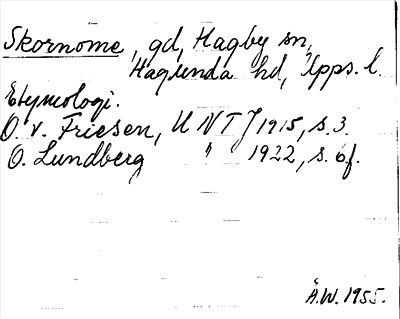 Skornome, gd, Hagby sn,
Hagunda hd, Upps. l.
Etymologi.
O. v. Friesen, UNTJ 1915, s. 3.
O. Lundberg " 1922, s. 6f.
Å.W. 1955.